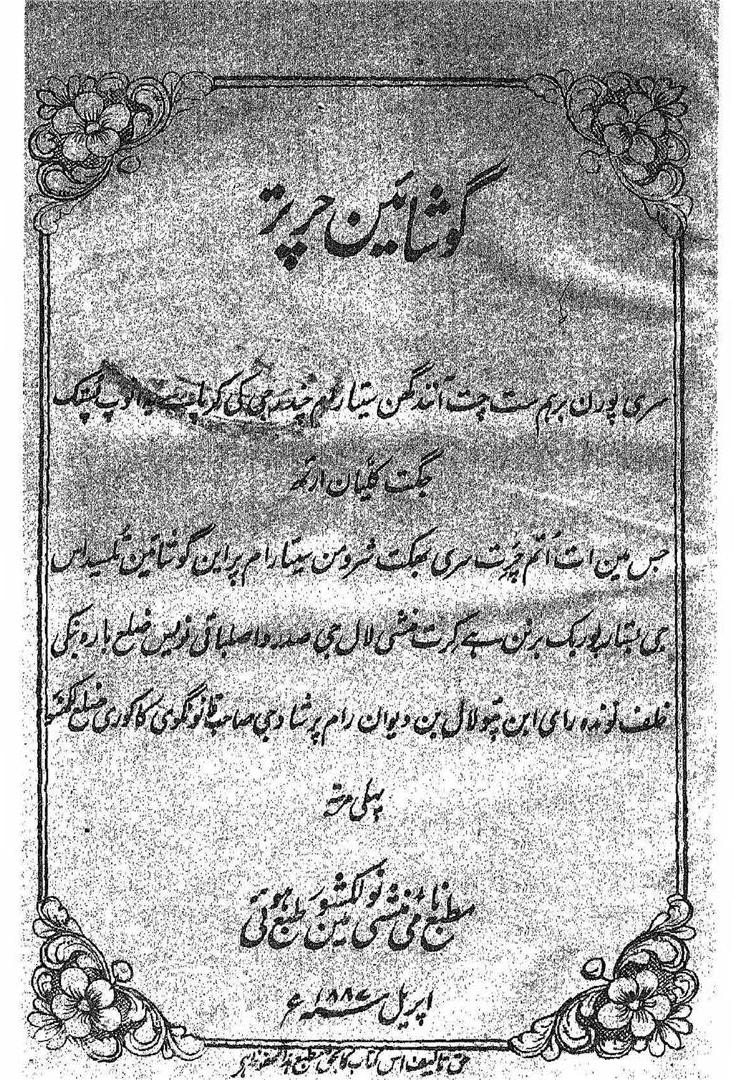 گوشائین چرتر
سری پورن برہم ست چت آنند گھن سیتا رام چندر جی کی کرپا سے انوپ پستک
جگت کلیان ارتھ
جس مین ات اُتم چرت سری بھگت شرومن سیتا رام پراین گوشائین تلسیداس
جی بستار پوربک برنن ہے کرت منشی لال جی صدر واصلباقی نویس ضلع بارہ بنکی
خلف نوندہ رای ابن لال بن دیوان رام پرشاد جی صاحب قانونگوی کاکوری ضلع لکھنؤ
پہلی مرتبہ
مطبع نامی منشی نولکشور مین طبع ہوئی
اپریل سنہ ۱۸۸۷ ء
حق تالیف اس کتاب کا بحق مطبع ہذا محفوظ ہے